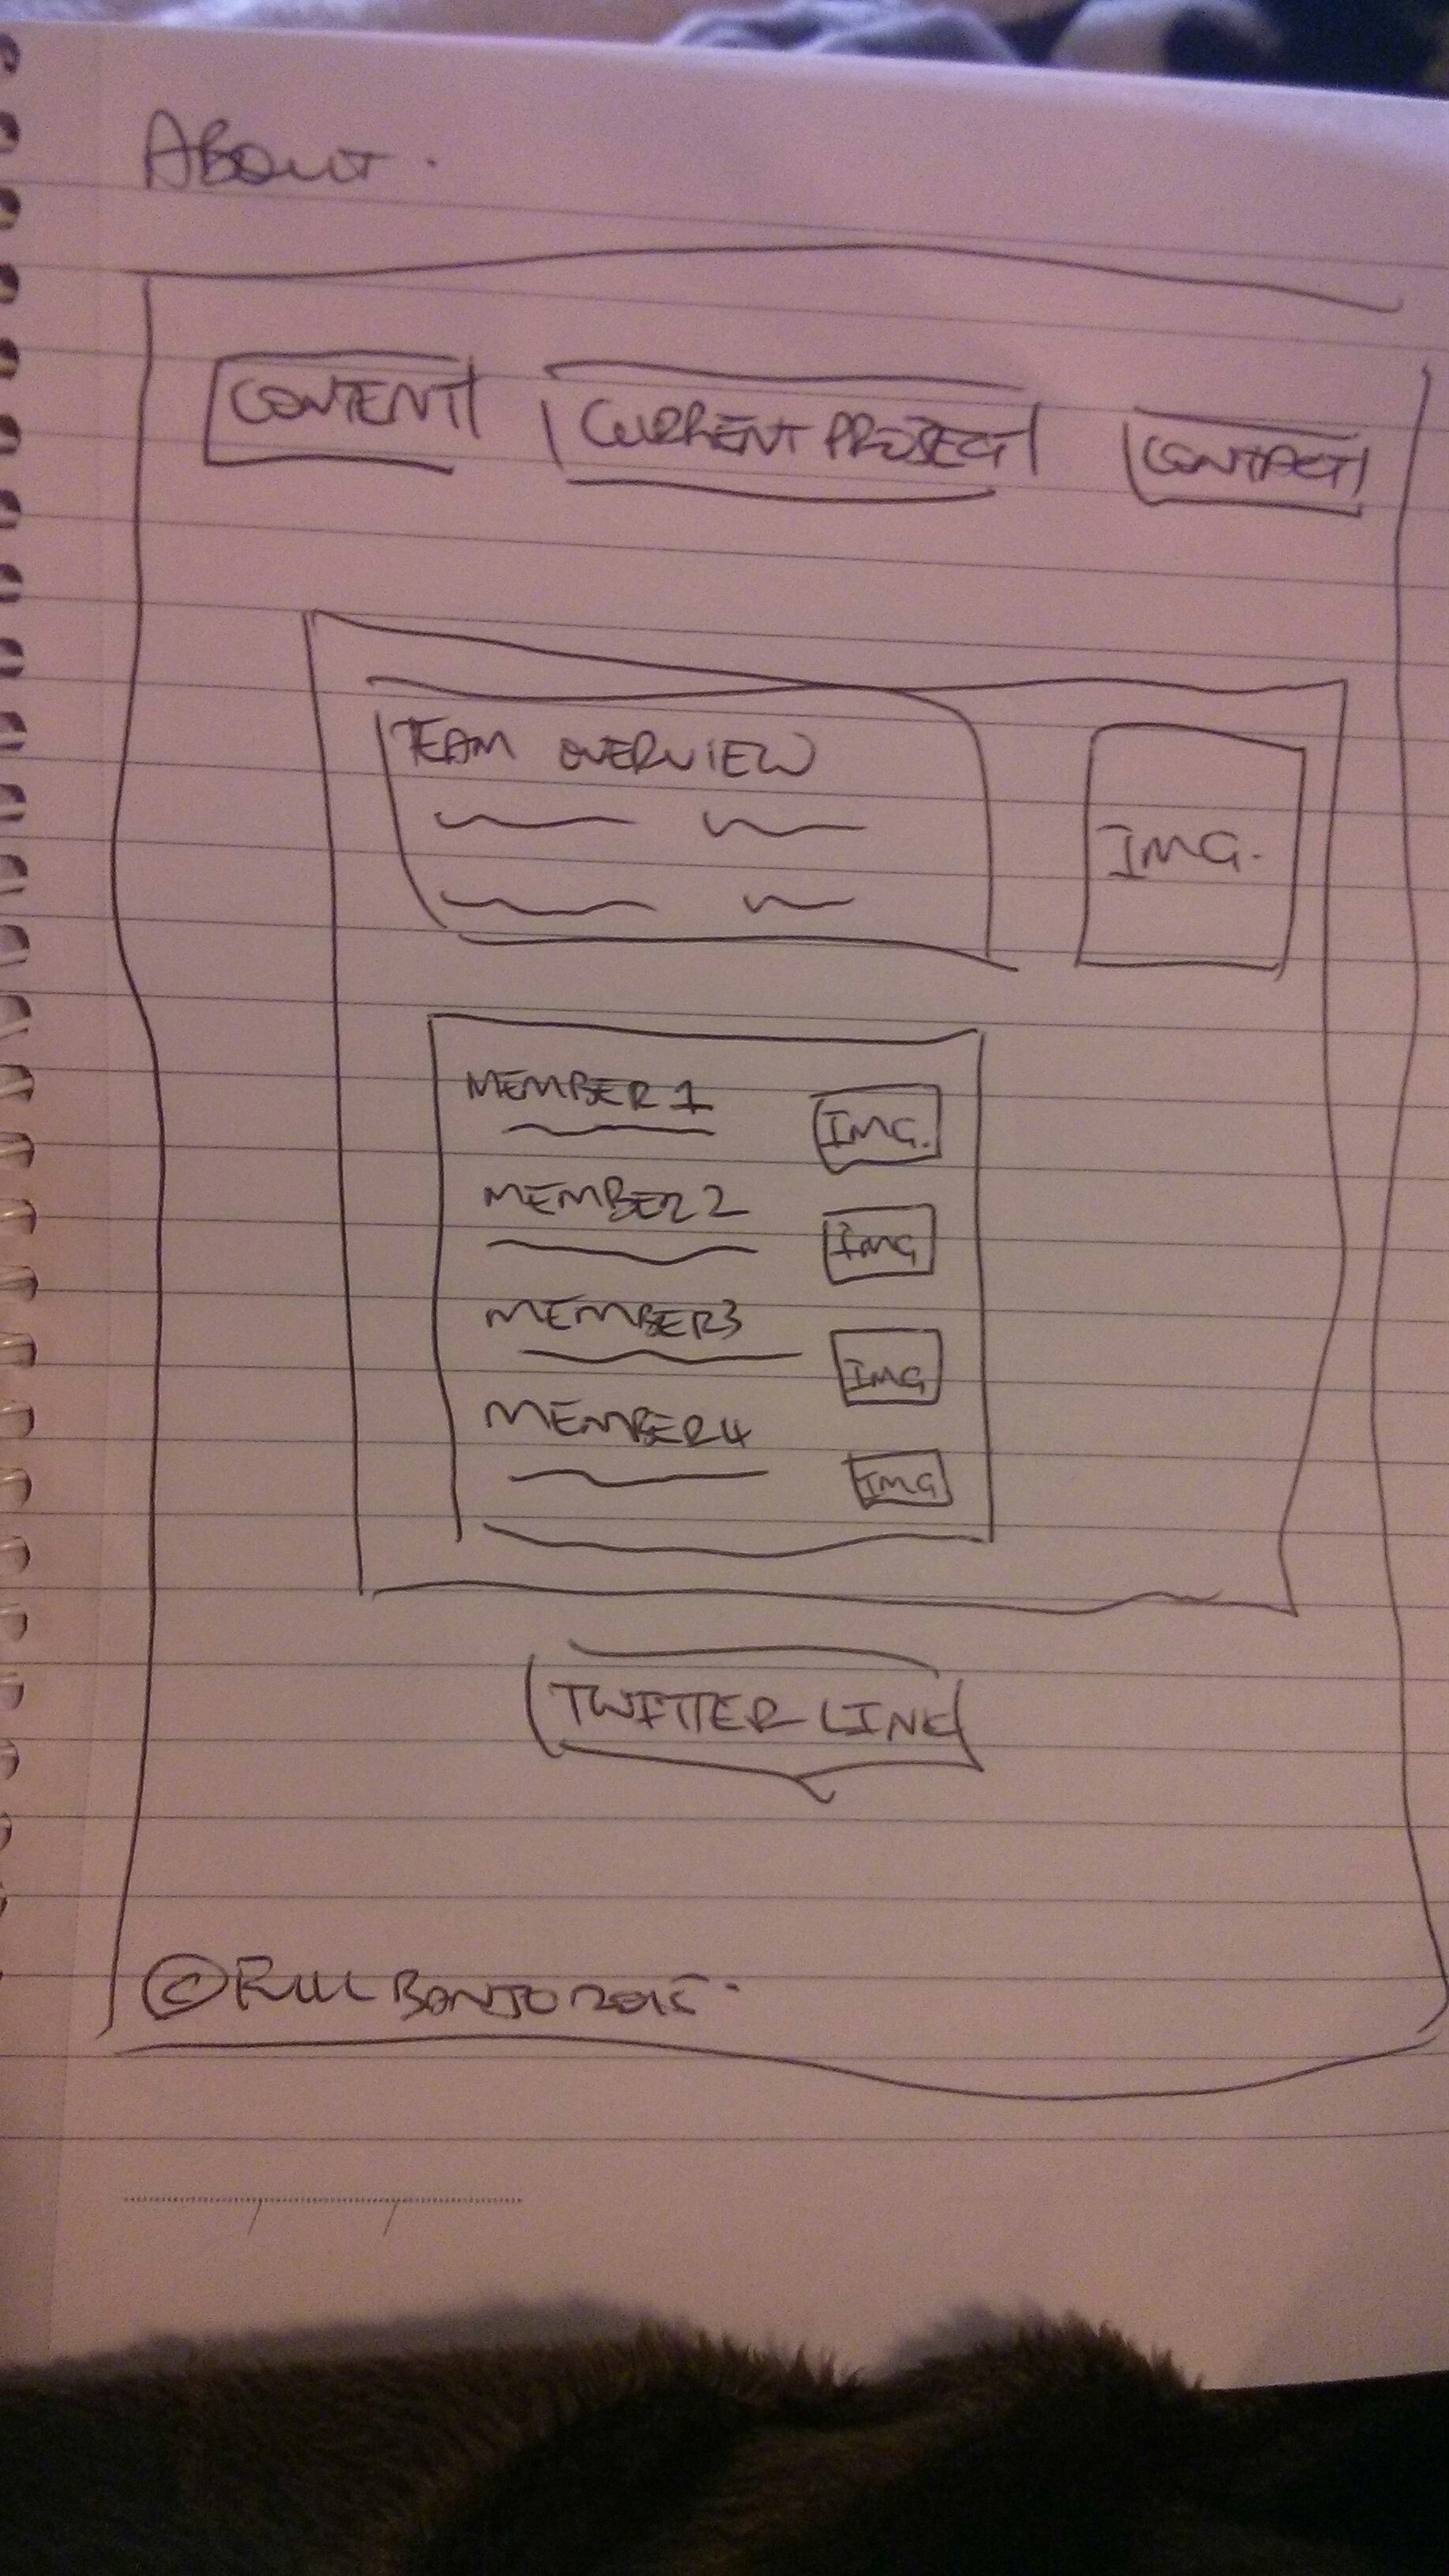 ABOUT.
CONTENT CURRENT PROJECT CONTACT
TEAM OVERVIEW
IMG.
MEMBER 1 IMG.
MEMBER 2 IMG
MEMBER 3 IMG
MEMBER 4 IMG
TWITTER LINK
© FULL BANJO 2015.